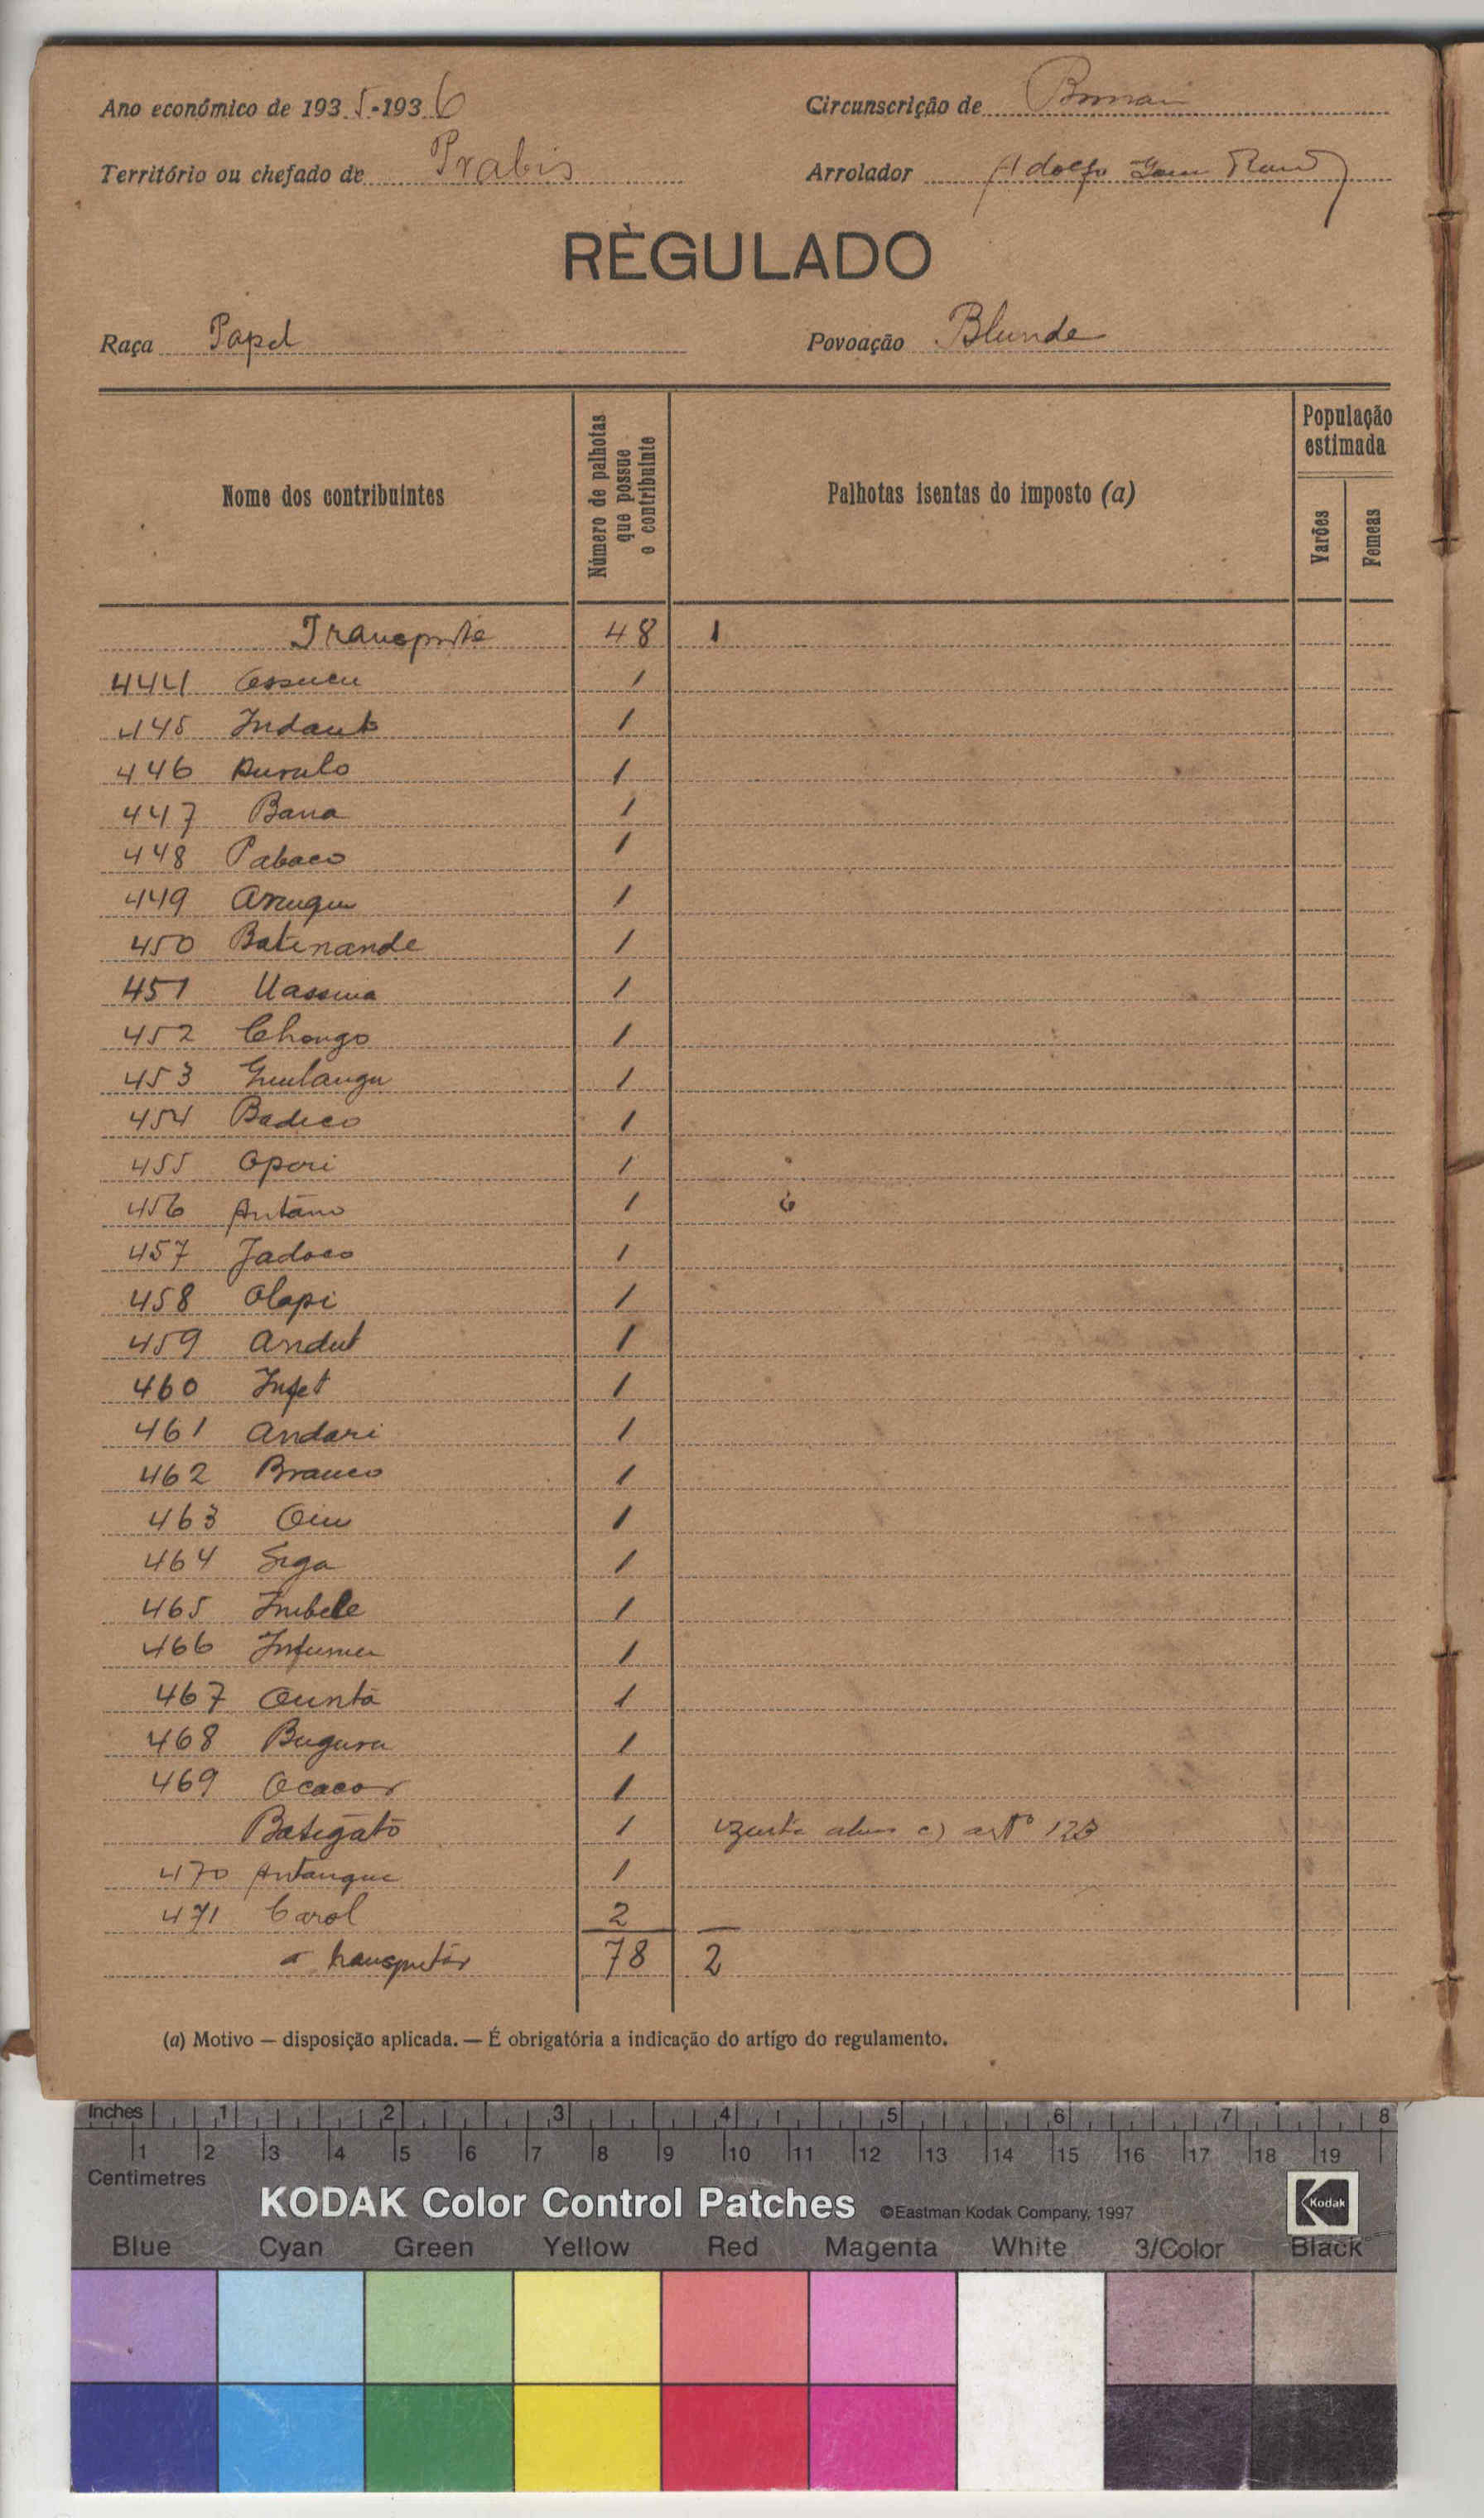 Ano económico de 1935-1936
Circunscrição de
Território ou chefado de Prabis
Arrolador Adolfo
RÈGULADO
Raça Papel
Povoação Blunde
Nome dos contribuintes
Número de palhotas que possue o contribuinte
Palhotas isentas do imposto (a)
População estimada
Varões
Femeas
Transporte 48 1
444 1
445 1
446 1
447 Bana 1
448 Pabaco 1
449 1
450 Batenande 1
451 1
452 Chongo 1
453 1
454 Badico 1
455 Opori 1
456 1
457 Jadoco 1
458 Olapi 1
459 Andut 1
460 1
461 Andari 1
462 Branco 1
463 1
464 Siga 1
465 1
466 1
467 Ountà 1
468 1
469 Ocacor 1
Batigatò 1 artº 123
470 Antangue 1
471 Carol 2
a transportar 78 2
(a) Motivo — disposição aplicada. — É obrigatória a indicação do artigo do regulamento.
Inches 1 2 3 4 5 6 7 8
1 2 3 4 5 6 7 8 9 10 11 12 13 14 15 16 17 18 19
Centimetres
KODAK Color Control Patches ©Eastman Kodak Company, 1997 Kodak
Blue Cyan Green Yellow Red Magenta White 3/Color Black